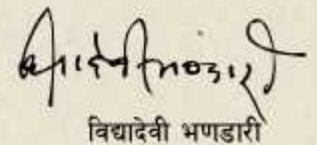 विद्यादेवी भण्डारी